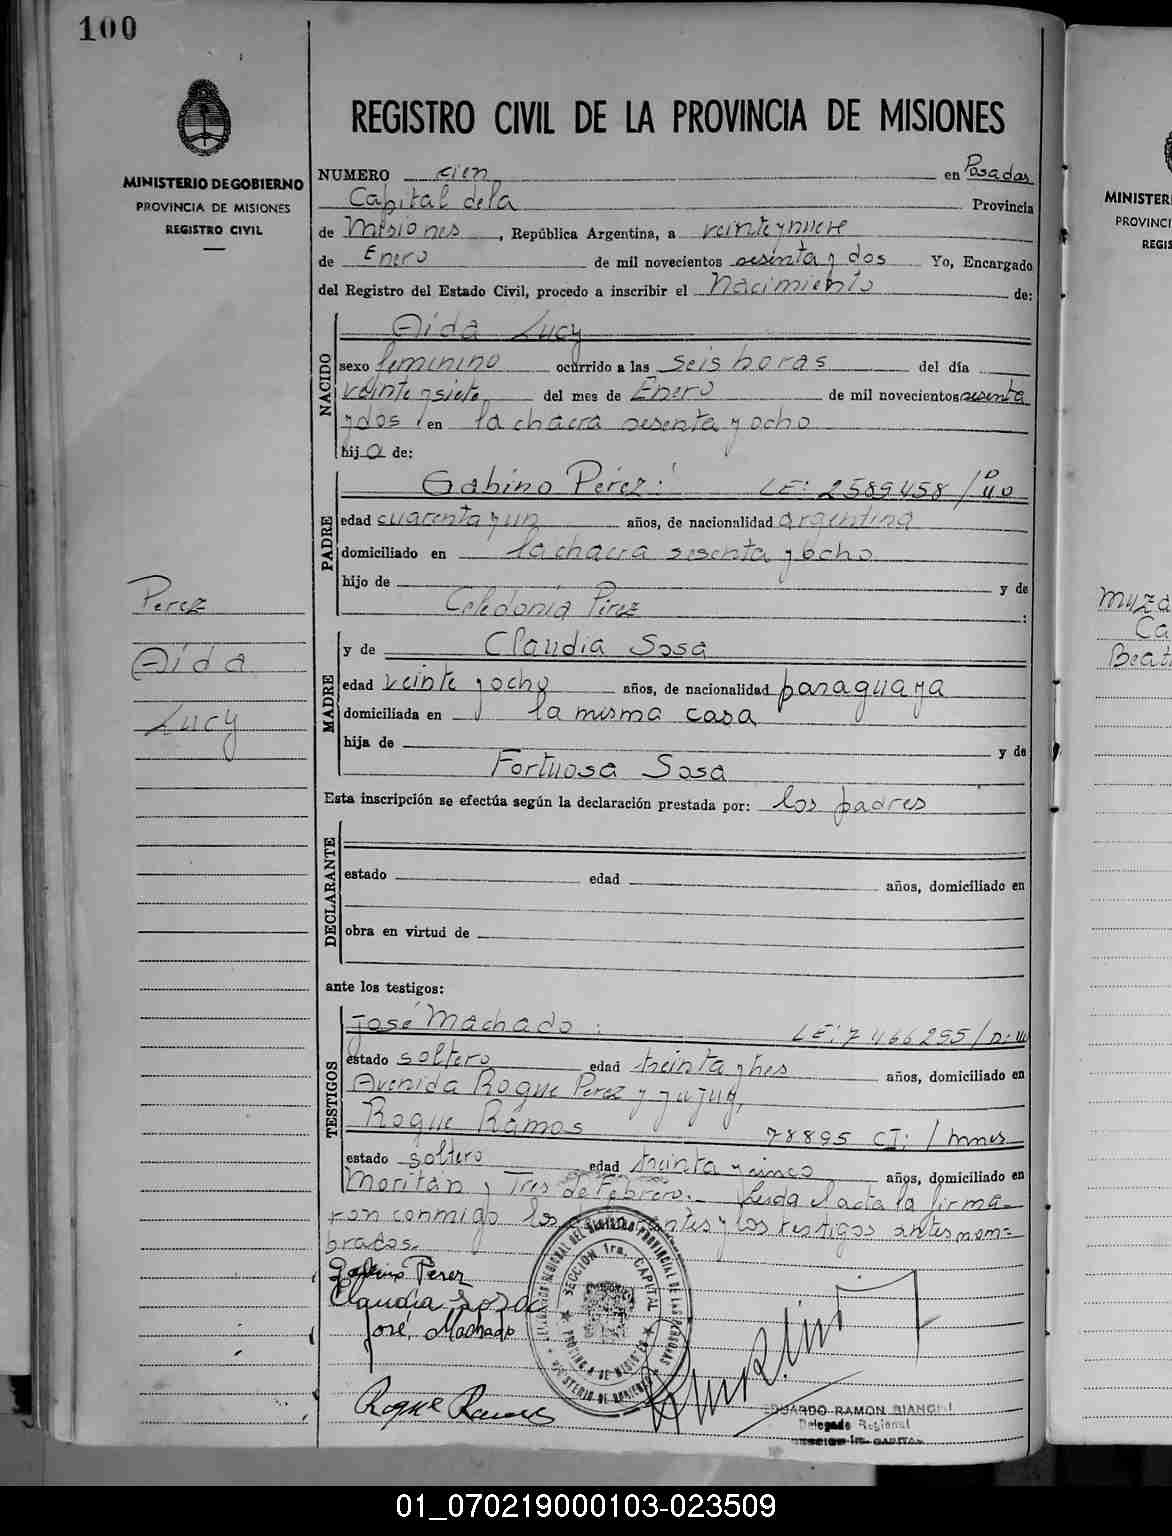 100
MINISTERIO DE GOBIERNO
PROVINCIA DE MISIONES
REGISTRO CIVIL
REGISTRO CIVIL DE LA PROVINCIA DE MISIONES
NUMERO cien en Posadas
Capital de la Provincia
de Misiones, República Argentina, a veinte y nueve
de Enero de mil novecientos sesenta y dos Yo, Encargado
del Registro del Estado Civil, procedo a inscribir el Nacimiento de:
NACIDO
Aida Lucy
sexo femenino ocurrido a las seis horas del día
veinte y siete del mes de Enero de mil novecientos sesenta
y dos, en la chacra sesenta y ocho
hija de:
PADRE
Gabino Pérez: LE: 2589458/
edad cuarenta y un años, de nacionalidad argentina
domiciliado en la chacra sesenta y ocho
hijo de y de
Celedonia Pérez :
MADRE
y de Claudia Sosa
edad veinte y ocho años, de nacionalidad paraguaya
domiciliada en la misma casa
hija de y de
Fortuosa Sosa
Esta inscripción se efectúa según la declaración prestada por: los padres
DECLARANTE
estado edad años, domiciliado en
obra en virtud de
ante los testigos:
TESTIGOS
José Machado: LE: 7466295/
estado soltero edad treinta y tres años, domiciliado en
Avenida Roque Perez y Jujuy,
Roque Ramos 78895 CI: /
estado soltero edad treinta y cinco años, domiciliado en
Moritan y Tres de Febrero.- Leida el acta la firma-
ron conmigo los y los testigos antes nom-
brados.
Gabino Perez
Claudia Sosa
José, Machado
Roque Ramos
SECCION 1ra. CAPITAL
PROVINCIA DE MISIONES
EDUARDO RAMON BIANCHI
Delegado Regional
SECCION 1ra. CAPITAL
Perez
Aida
Lucy
MINISTER
PROVINCI
REGIS
Muza
Ca
Beat
01_070219000103-023509